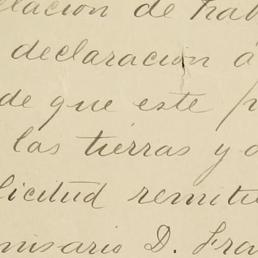 elación de trab
declaración á
de que este p
las tierras y a
licitud remiti
misario D. Fran